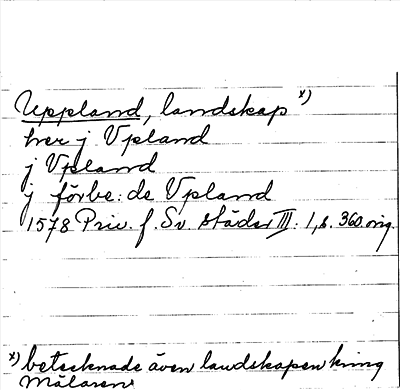 Uppland, landskap x)
her j Vpland
j Vpland
j förbe: de Vpland
1578 Priv. f. Sv. städer III: 1, s. 360. orig.
x) betecknade även landskapen kring
Mälaren